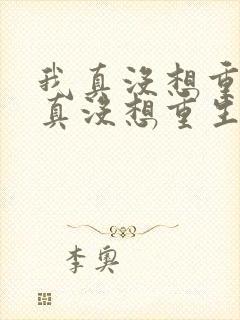 我真没想重
真没想重生
李奥